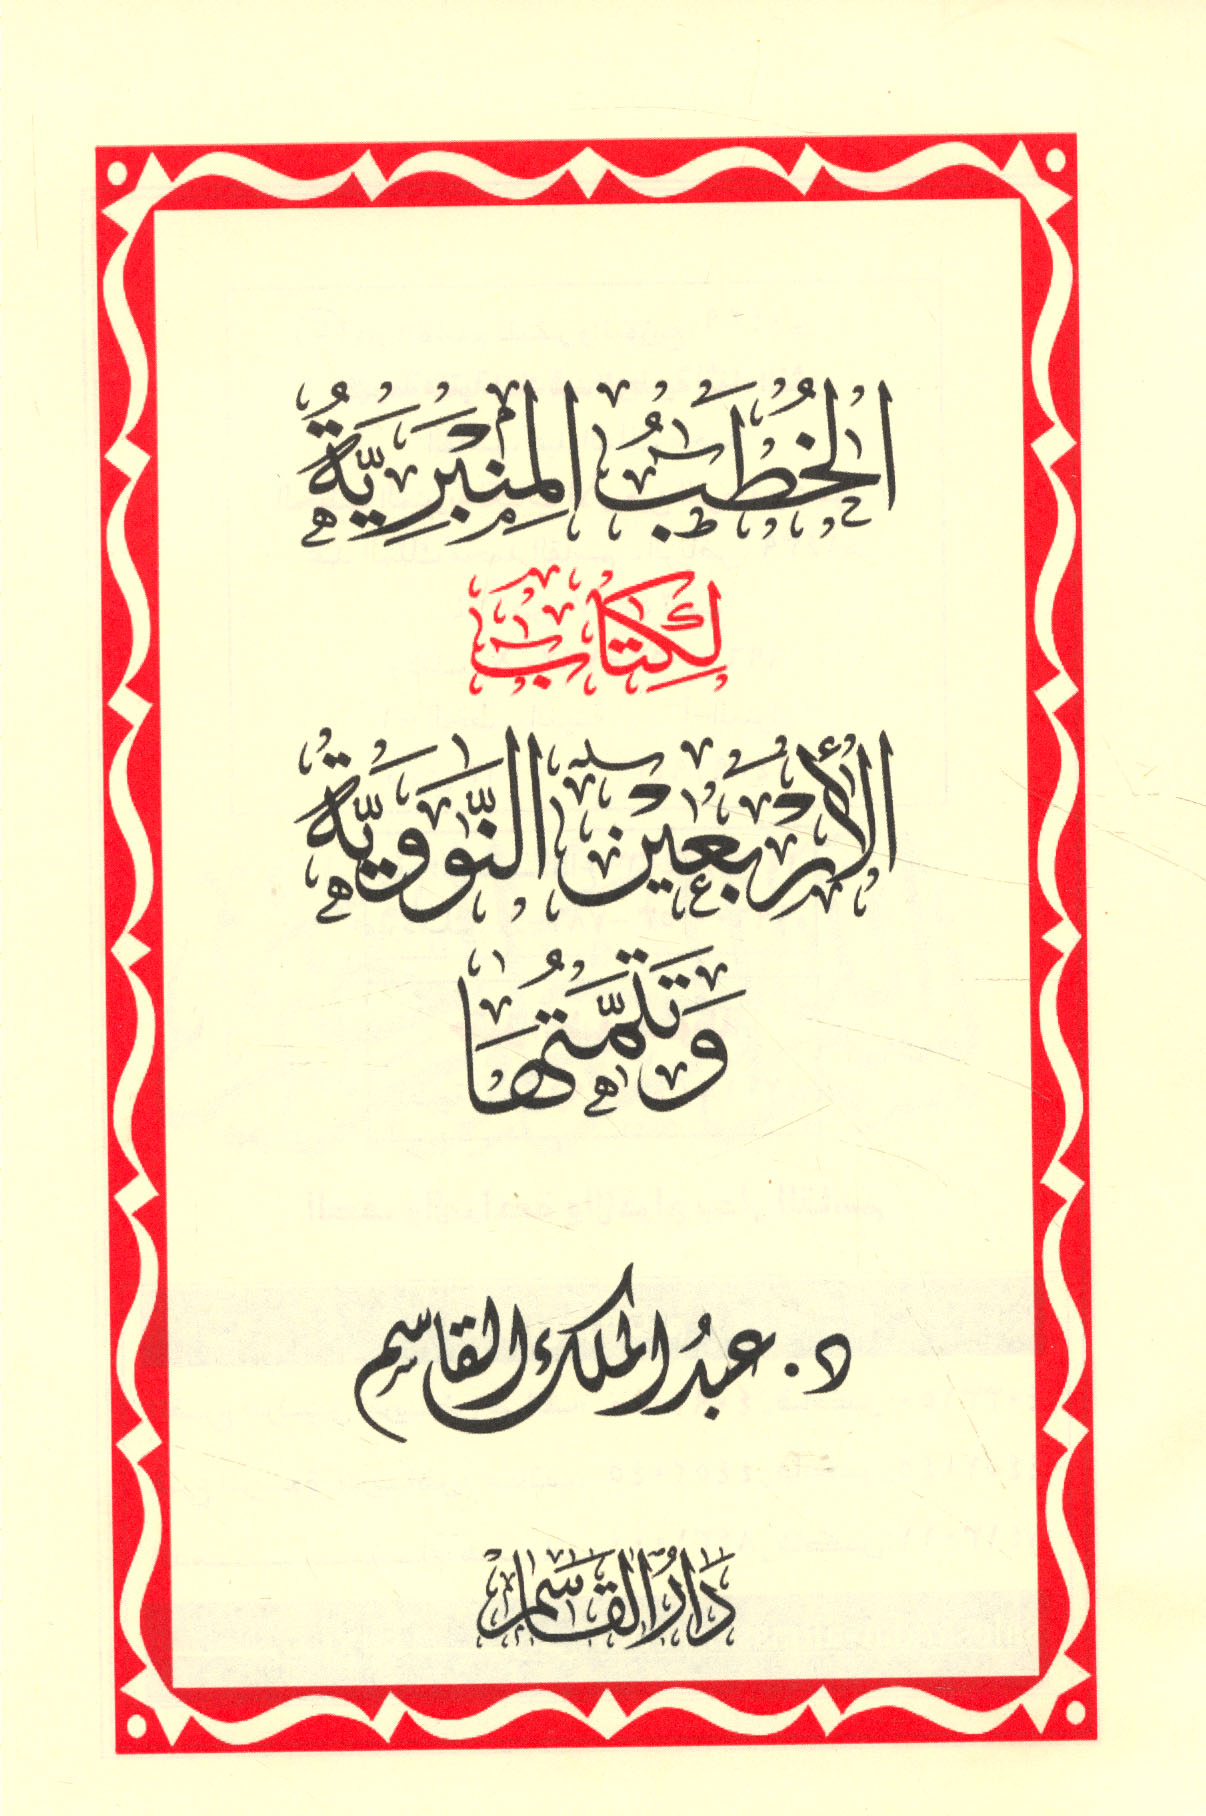 الخُطَبُ المِنْبَرِيَّةُ
لِكِتَابِ
الأَرْبَعِيْن النَّوَوِيَّةُ
وَتَتِمَّتُهَا
د. عبدُ الملك القاسم
دَارُ القَاسِم